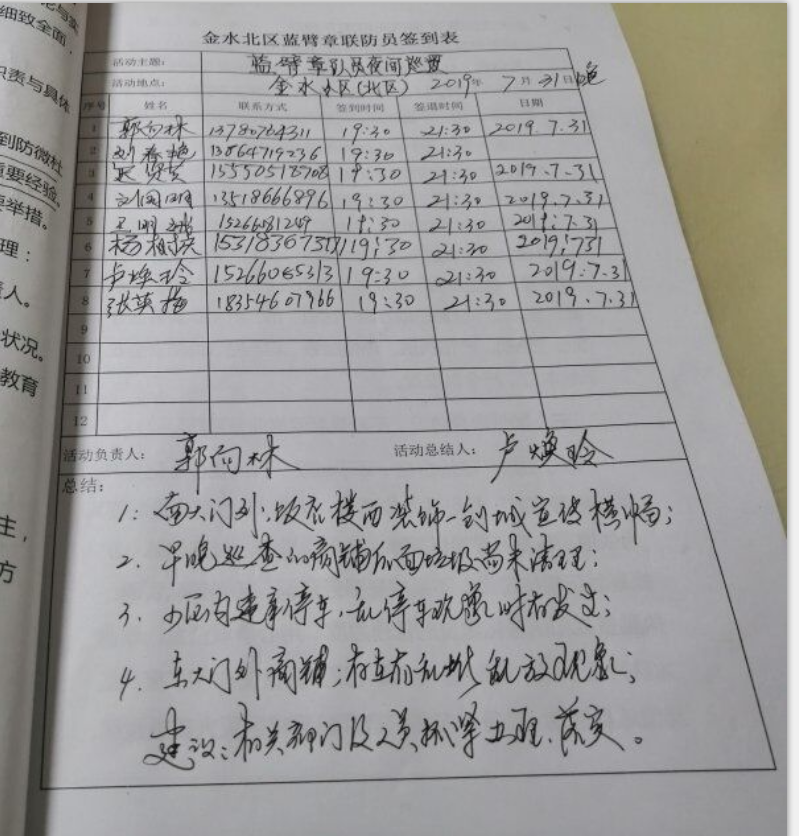 细致全面、
职责与具体
到防微杜
重要经验。
举措。
理：
人。
状况。
教育
主，
方
金水北区蓝臂章联防员签到表
活动主题： 蓝臂章队员夜间巡逻
活动地点： 金水小区(北区) 2019年 7月31日晚
序号 姓名 联系方式 签到时间 签退时间 日期
1 郭向林 13780764311 19:30 21:30 2019.7.31
2 刘春艳 13864719236 19:30 21:30
3 15550518708 19:30 21:30 2019.7.31
4 刘国明 13518666896 19:30 21:30 2019.7.31
5 王明 15266081249 19:30 21:30 2019.7.31
6 杨 19:30 21:30 2019.7.31
7 卢焕玲 15266065313 19:30 21:30 2019.7.31
8 张英梅 18354607966 19:30 21:30 2019.7.31
9
10
11
12
活动负责人： 郭向林 活动总结人： 卢焕玲
总结：
1. 南大门外、饭店楼西装饰一创城宣传横幅；
2. 早晚巡查的商铺后面垃圾尚未清理；
3. 小区内违章停车、乱停车现象时有发生；
4. 东大门外商铺；存在有乱堆乱放现象；
建议：相关部门及人员抓紧办理、落实。